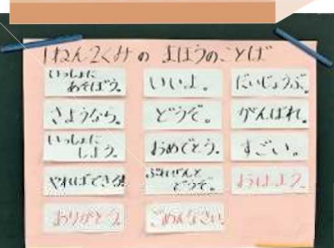 1ねん2くみの まほうのことば
いっしょに
あそぼう。
いいよ。
だいじょうぶ。
さようなら。
どうぞ。
がんばれ。
いっしょに
しよう。
おめでとう。
すごい。
やればできる!
ぷれぜんと
どうぞ。
おはよう。
ありがとう。
ごめんなさい。